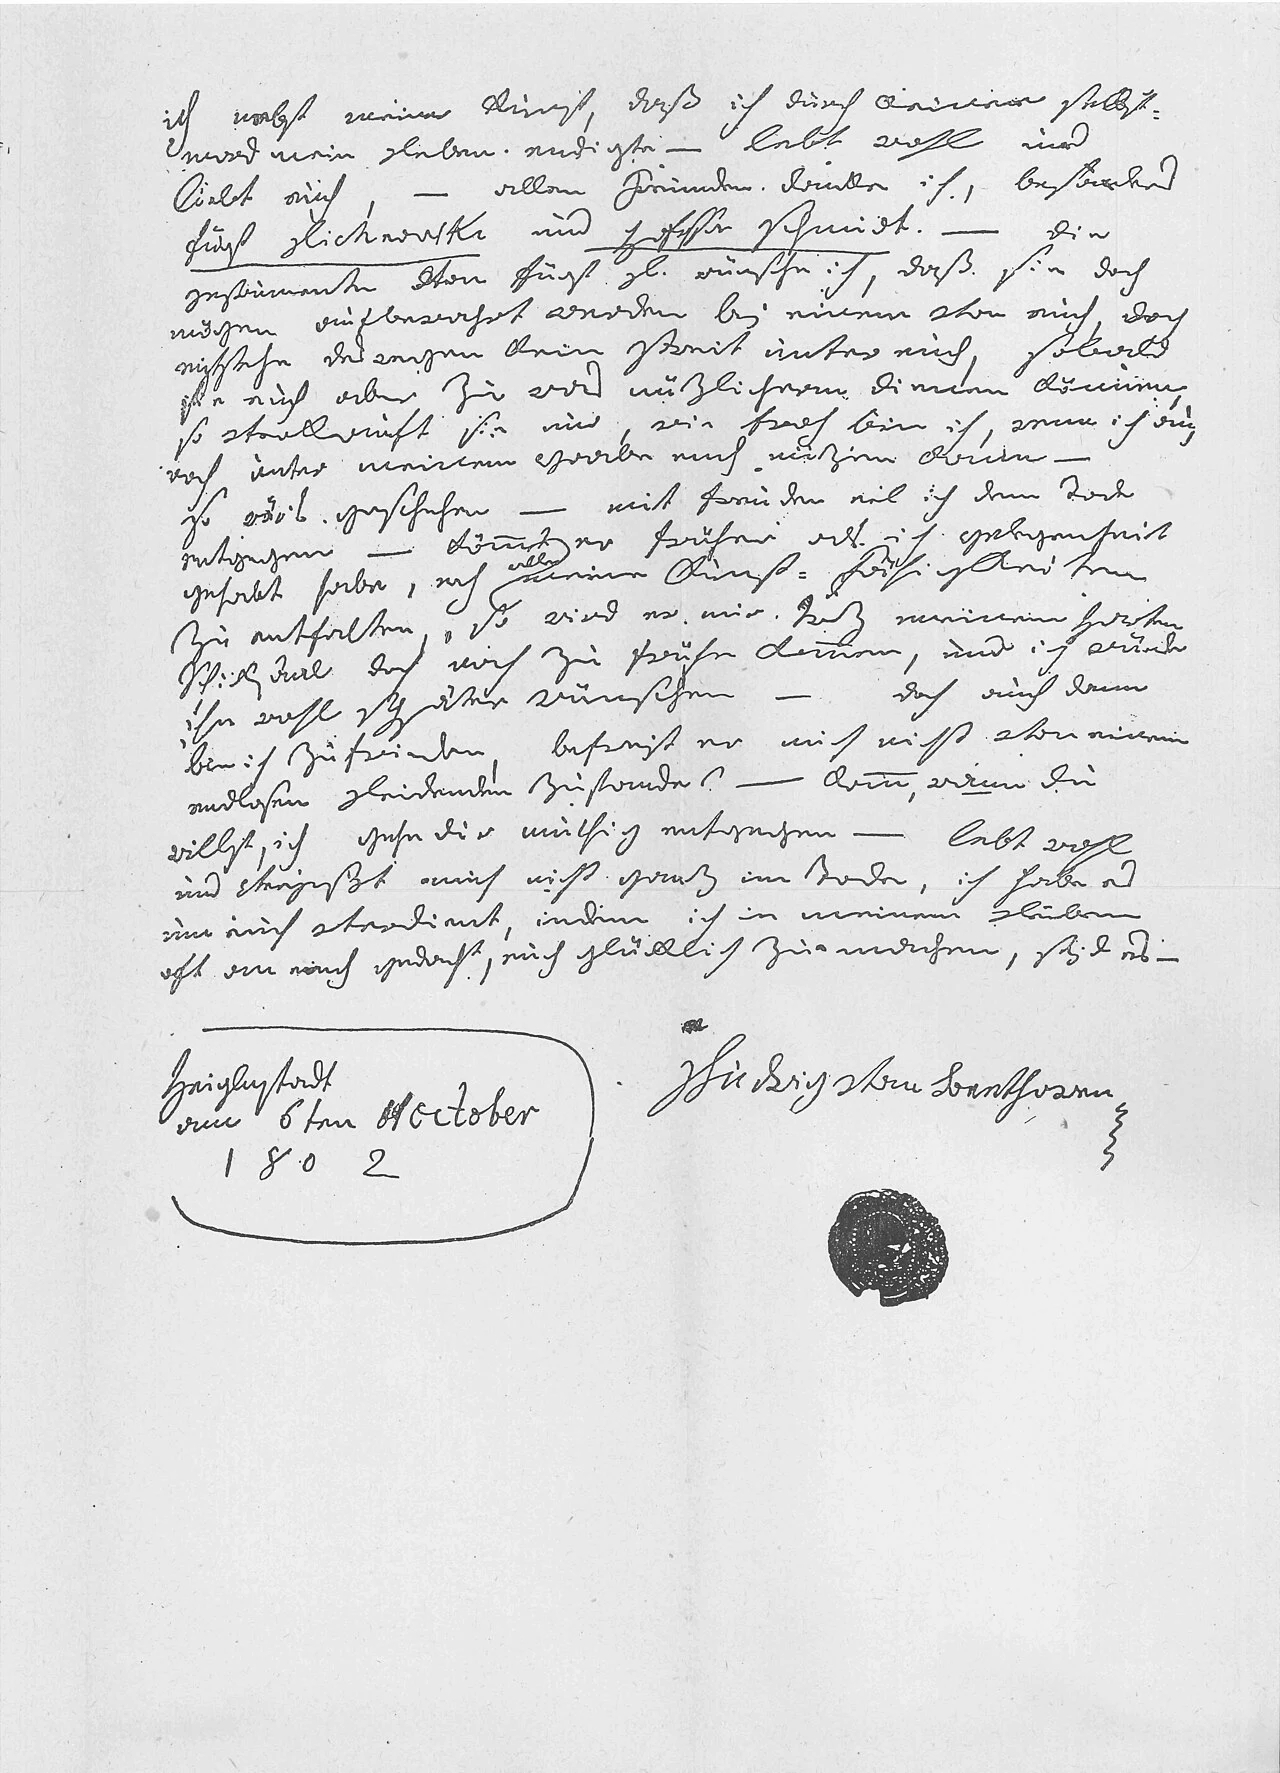 ich nebst meiner Kunst, daß ich durch keinen selbst-
mord mein Leben endigte — lebt wohl und
liebt euch, — allen Freunden danke ich, besonders
fürst Lichnovski und professor schmidt. — die
Instrumente von fürst L. wünsche ich, daß sie doch
mögen aufbewahrt werden bej einem von euch, doch
entstehe deswegen kein streit unter euch, sobald
sie euch aber zu was nüzlicherm dienen können,
so verkauft sie nur, wie froh bin ich, wenn ich auch
noch unter meinem Grabe euch nüzen kann —
so wärs geschehen — mit freuden eil ich dem Tode
entgegen — kömmt er früher als ich gelegenheit
gehabt habe, noch alle meine Kunst-Fähigkeiten
zu entfalten, so wird er mir trotz meinem harten
Schicksaal doch noch zu frühe kommen, und ich würde
ihn wohl später wünschen — doch auch dann
bin ich zufrieden, befrejt er mich nicht von einem
endlosen Leidenden Zustande? — komm, wann du
willst, ich gehe dir muthig entgegen — lebt wohl
und Vergeßt mich nicht ganz im Tode, ich habe es
um euch verdient, indem ich in meinem Leben
oft an euch gedacht, euch glücklich zu machen, sejd es —
Ludwig van Beethoven
Heiglnstadt
am 6ten october
1802